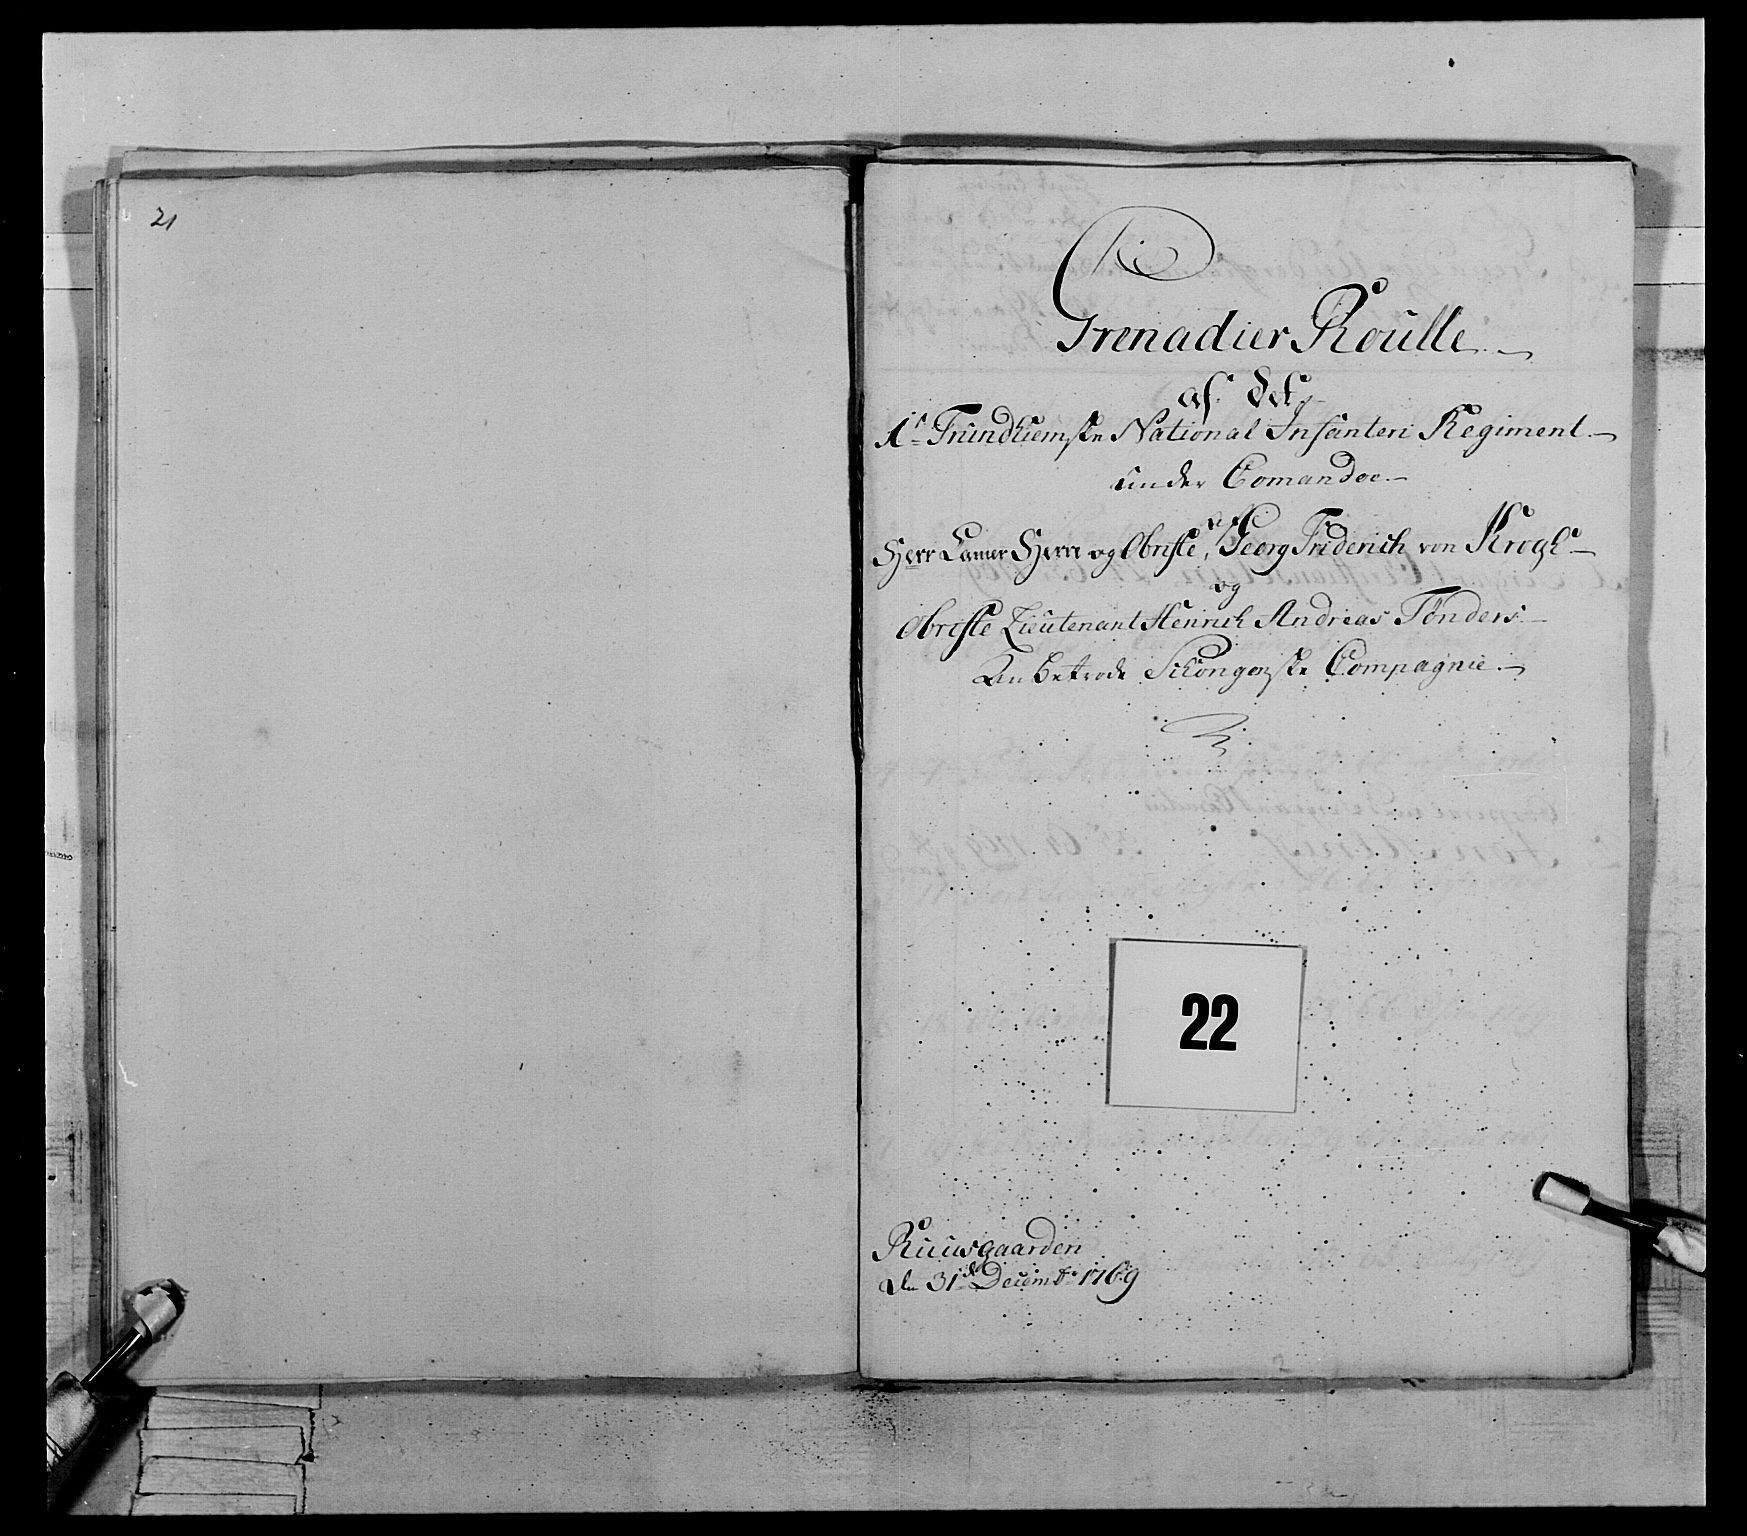 21
Grenadier Roulle
af det
1te Trundhiemske National Infanteri Regiment
under Comandoe
Herr Camer Herre og Obriste Georg Friderich von Krogh
og
Obriste Lieutenant Heinrich Andreas Tønders
An betrode Schongenske Compagnie
22
Ruusgaarden
den 31de Decembr 1769